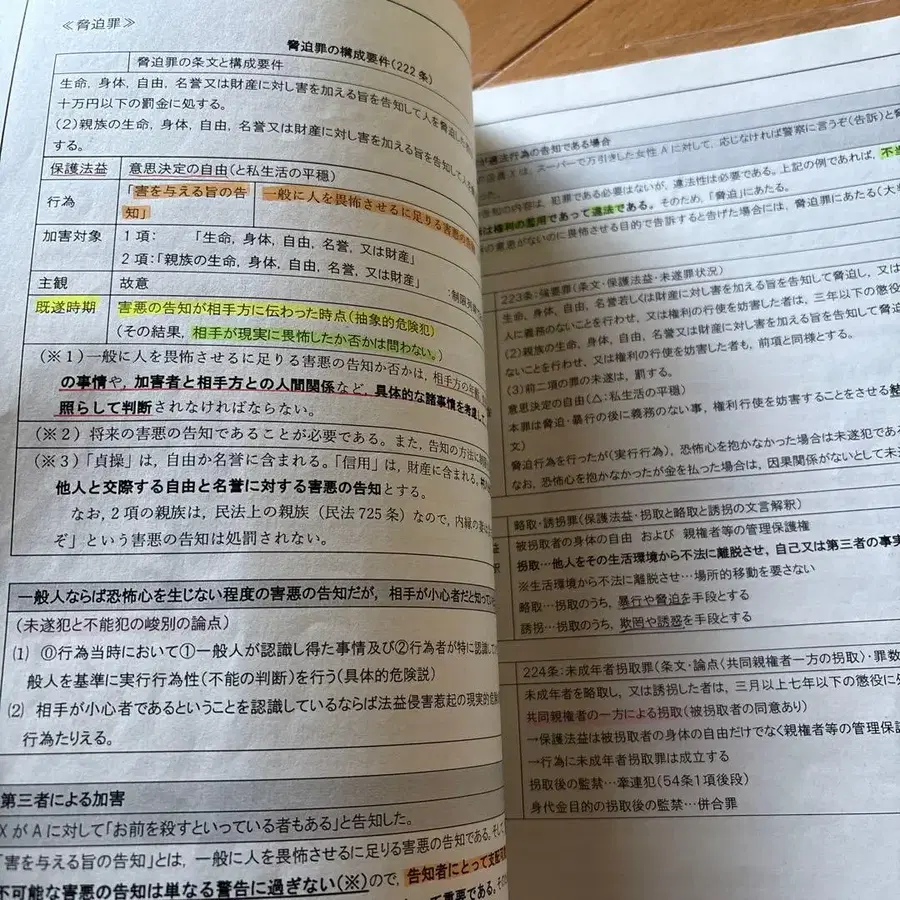 ≪脅迫罪≫
脅迫罪の構成要件(222条)
脅迫罪の条文と構成要件
生命, 身体, 自由, 名誉又は財産に対し害を加える旨を告知して人を脅迫した
十万円以下の罰金に処する。
(2)親族の生命, 身体, 自由, 名誉又は財産に対し害を加える旨を告知して人
する。
保護法益 意思決定の自由(と私生活の平穏)
行為 「害を与える旨の告知」 一般に人を畏怖させるに足りる害悪の告知
加害対象 1項: 「生命, 身体, 自由, 名誉, 又は財産」
2項:「親族の生命, 身体, 自由, 名誉, 又は財産」
主観 故意
既遂時期 害悪の告知が相手方に伝わった時点(抽象的危険犯)
(その結果, 相手が現実に畏怖したか否かは問わない。)
(※1)一般に人を畏怖させるに足りる害悪の告知か否かは, 相手方の年齢
の事情や, 加害者と相手方との人間関係など, 具体的な諸事情を考慮して
照らして判断されなければならない。
(※2) 将来の害悪の告知であることが必要である。また, 告知の方法に
(※3)「貞操」は, 自由か名誉に含まれる。「信用」は, 財産に含まれる。
他人と交際する自由と名誉に対する害悪の告知とする。
なお, 2項の親族は, 民法上の親族 (民法725条) なので, 内縁の
ぞ」という害悪の告知は処罰されない。
一般人ならば恐怖心を生じない程度の害悪の告知だが, 相手が小心者だと知ってい
(未遂犯と不能犯の峻別の論点)
(1) ⓪行為当時において①一般人が認識し得た事情及び②行為者が特に認識し
般人を基準に実行行為性(不能の判断)を行う(具体的危険説)
(2) 相手が小心者であるということを認識しているならば法益侵害惹起の現実的
行為たりえる。
第三者による加害
XがAに対して「お前を殺すといっている者もある」と告知した。
「害を与える旨の告知」とは, 一般に人を畏怖させるに足りる害悪の告知である。
不可能な害悪の告知は単なる警告に過ぎない(※)ので, 告知者にとって支配可
って重要である。
違法行為の告知である場合
Xは, スーパーで万引きした女性Aに対して, 応じなければ警察に言うぞ(告訴)と
告知の内容は, 犯罪である必要はないが, 違法性は必要である。上記の例であれば, 不当
は権利の濫用であって違法である。そのため, 「脅迫」にあたる。
の意思がないのに畏怖させる目的で告訴すると告げた場合には, 脅迫罪にあたる(大
223条:強要罪(条文・保護法益・未遂罪状況)
生命, 身体, 自由, 名誉若しくは財産に対し害を加える旨を告知して脅迫し, 又は
人に義務のないことを行わせ, 又は権利の行使を妨害した者は, 三年以下の懲役
(2)親族の生命, 身体, 自由, 名誉又は財産に対し害を加える旨を告知して脅迫
ないことを行わせ, 又は権利の行使を妨害した者も, 前項と同様とする。
(3)前二項の罪の未遂は, 罰する。
意思決定の自由(△:私生活の平穏)
本罪は脅迫・暴行の後に義務のない事, 権利行使を妨害することをさせる結
文)
脅迫行為を行ったが(実行行為), 恐怖心を抱かなかった場合は未遂犯である
なお, 恐怖心を抱かなかったが金を払った場合は, 因果関係がないとして未遂
略取・誘拐罪(保護法益・拐取と略取と誘拐の文言解釈)
被拐取者の身体の自由 および 親権者等の管理保護権
拐取…他人をその生活環境から不法に離脱させ, 自己又は第三者の事実
※生活環境から不法に離脱させ…場所的移動を要さない
略取…拐取のうち, 暴行や脅迫を手段とする
誘拐…拐取のうち, 欺罔や誘惑を手段とする
224条:未成年者拐取罪(条文・論点〈共同親権者一方の拐取〉・罪数
未成年者を略取し, 又は誘拐した者は, 三月以上七年以下の懲役に処
共同親権者の一方による拐取(被拐取者の同意あり)
→保護法益は被拐取者の身体の自由だけでなく親権者等の管理保護
→行為に未成年者拐取罪は成立する
拐取後の監禁…牽連犯(54条1項後段)
身代金目的の拐取後の監禁…併合罪